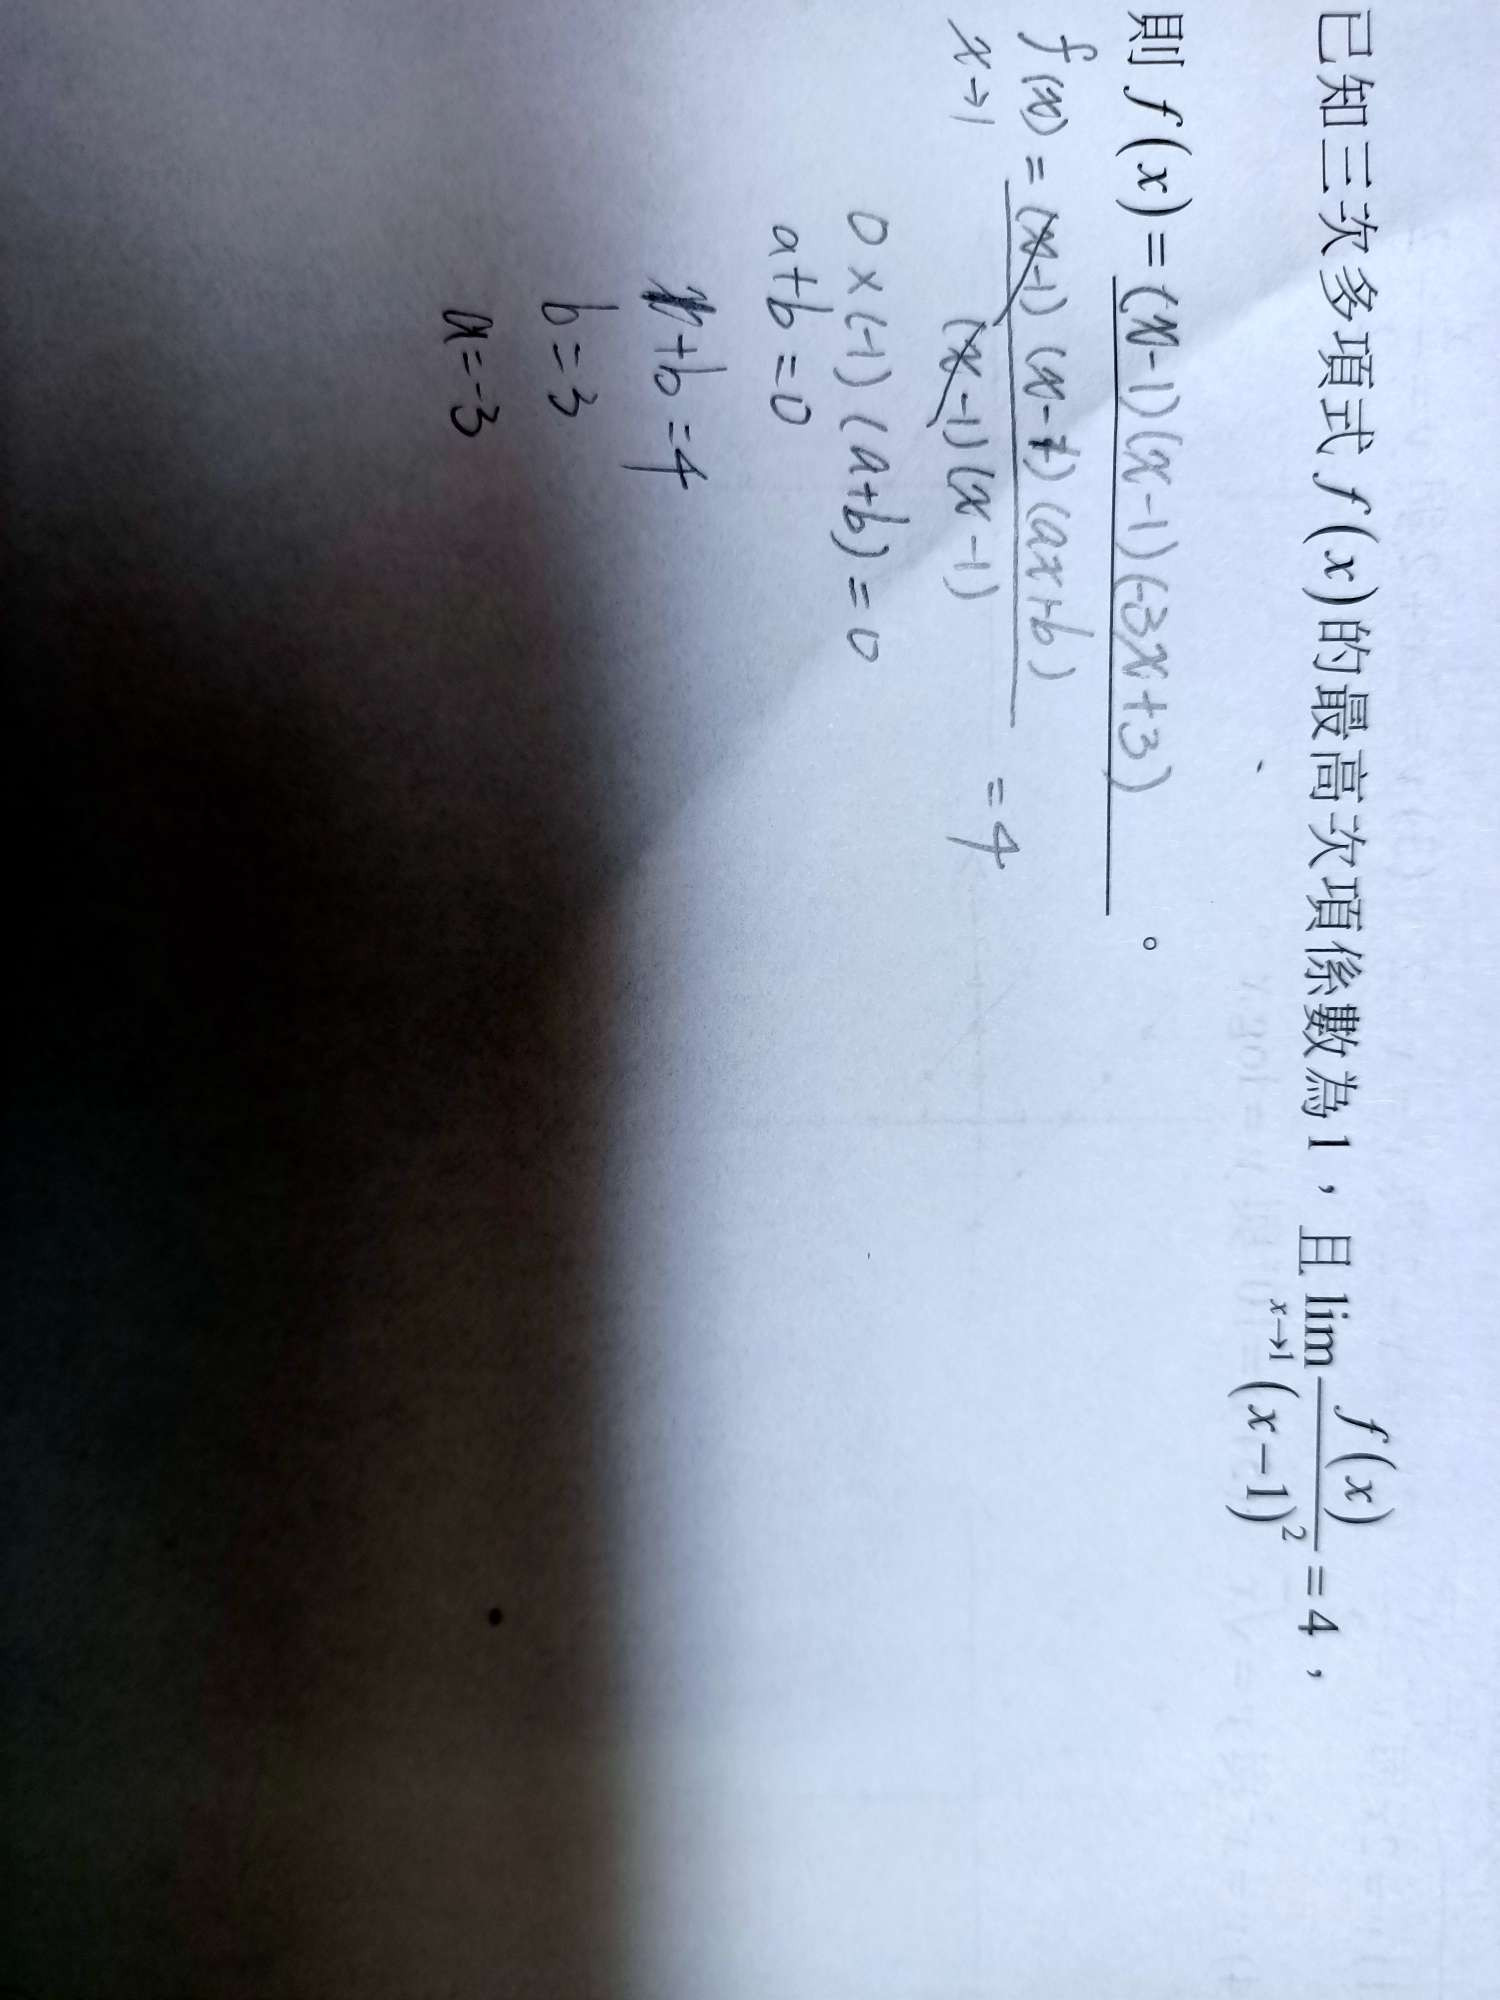 已知三次多項式 f(x) 的最高次項係數為1，且 lim x→1 f(x)/(x-1)² = 4，
則 f(x) = (x-1)(x-1)(-3x+3)。
f(x) = (x-1)(x-1)(ax+b)
x→1 (x-1)(x-1) = 4
0×(-1)(a+b)=0
a+b=0
x+b=4
b=3
a=-3